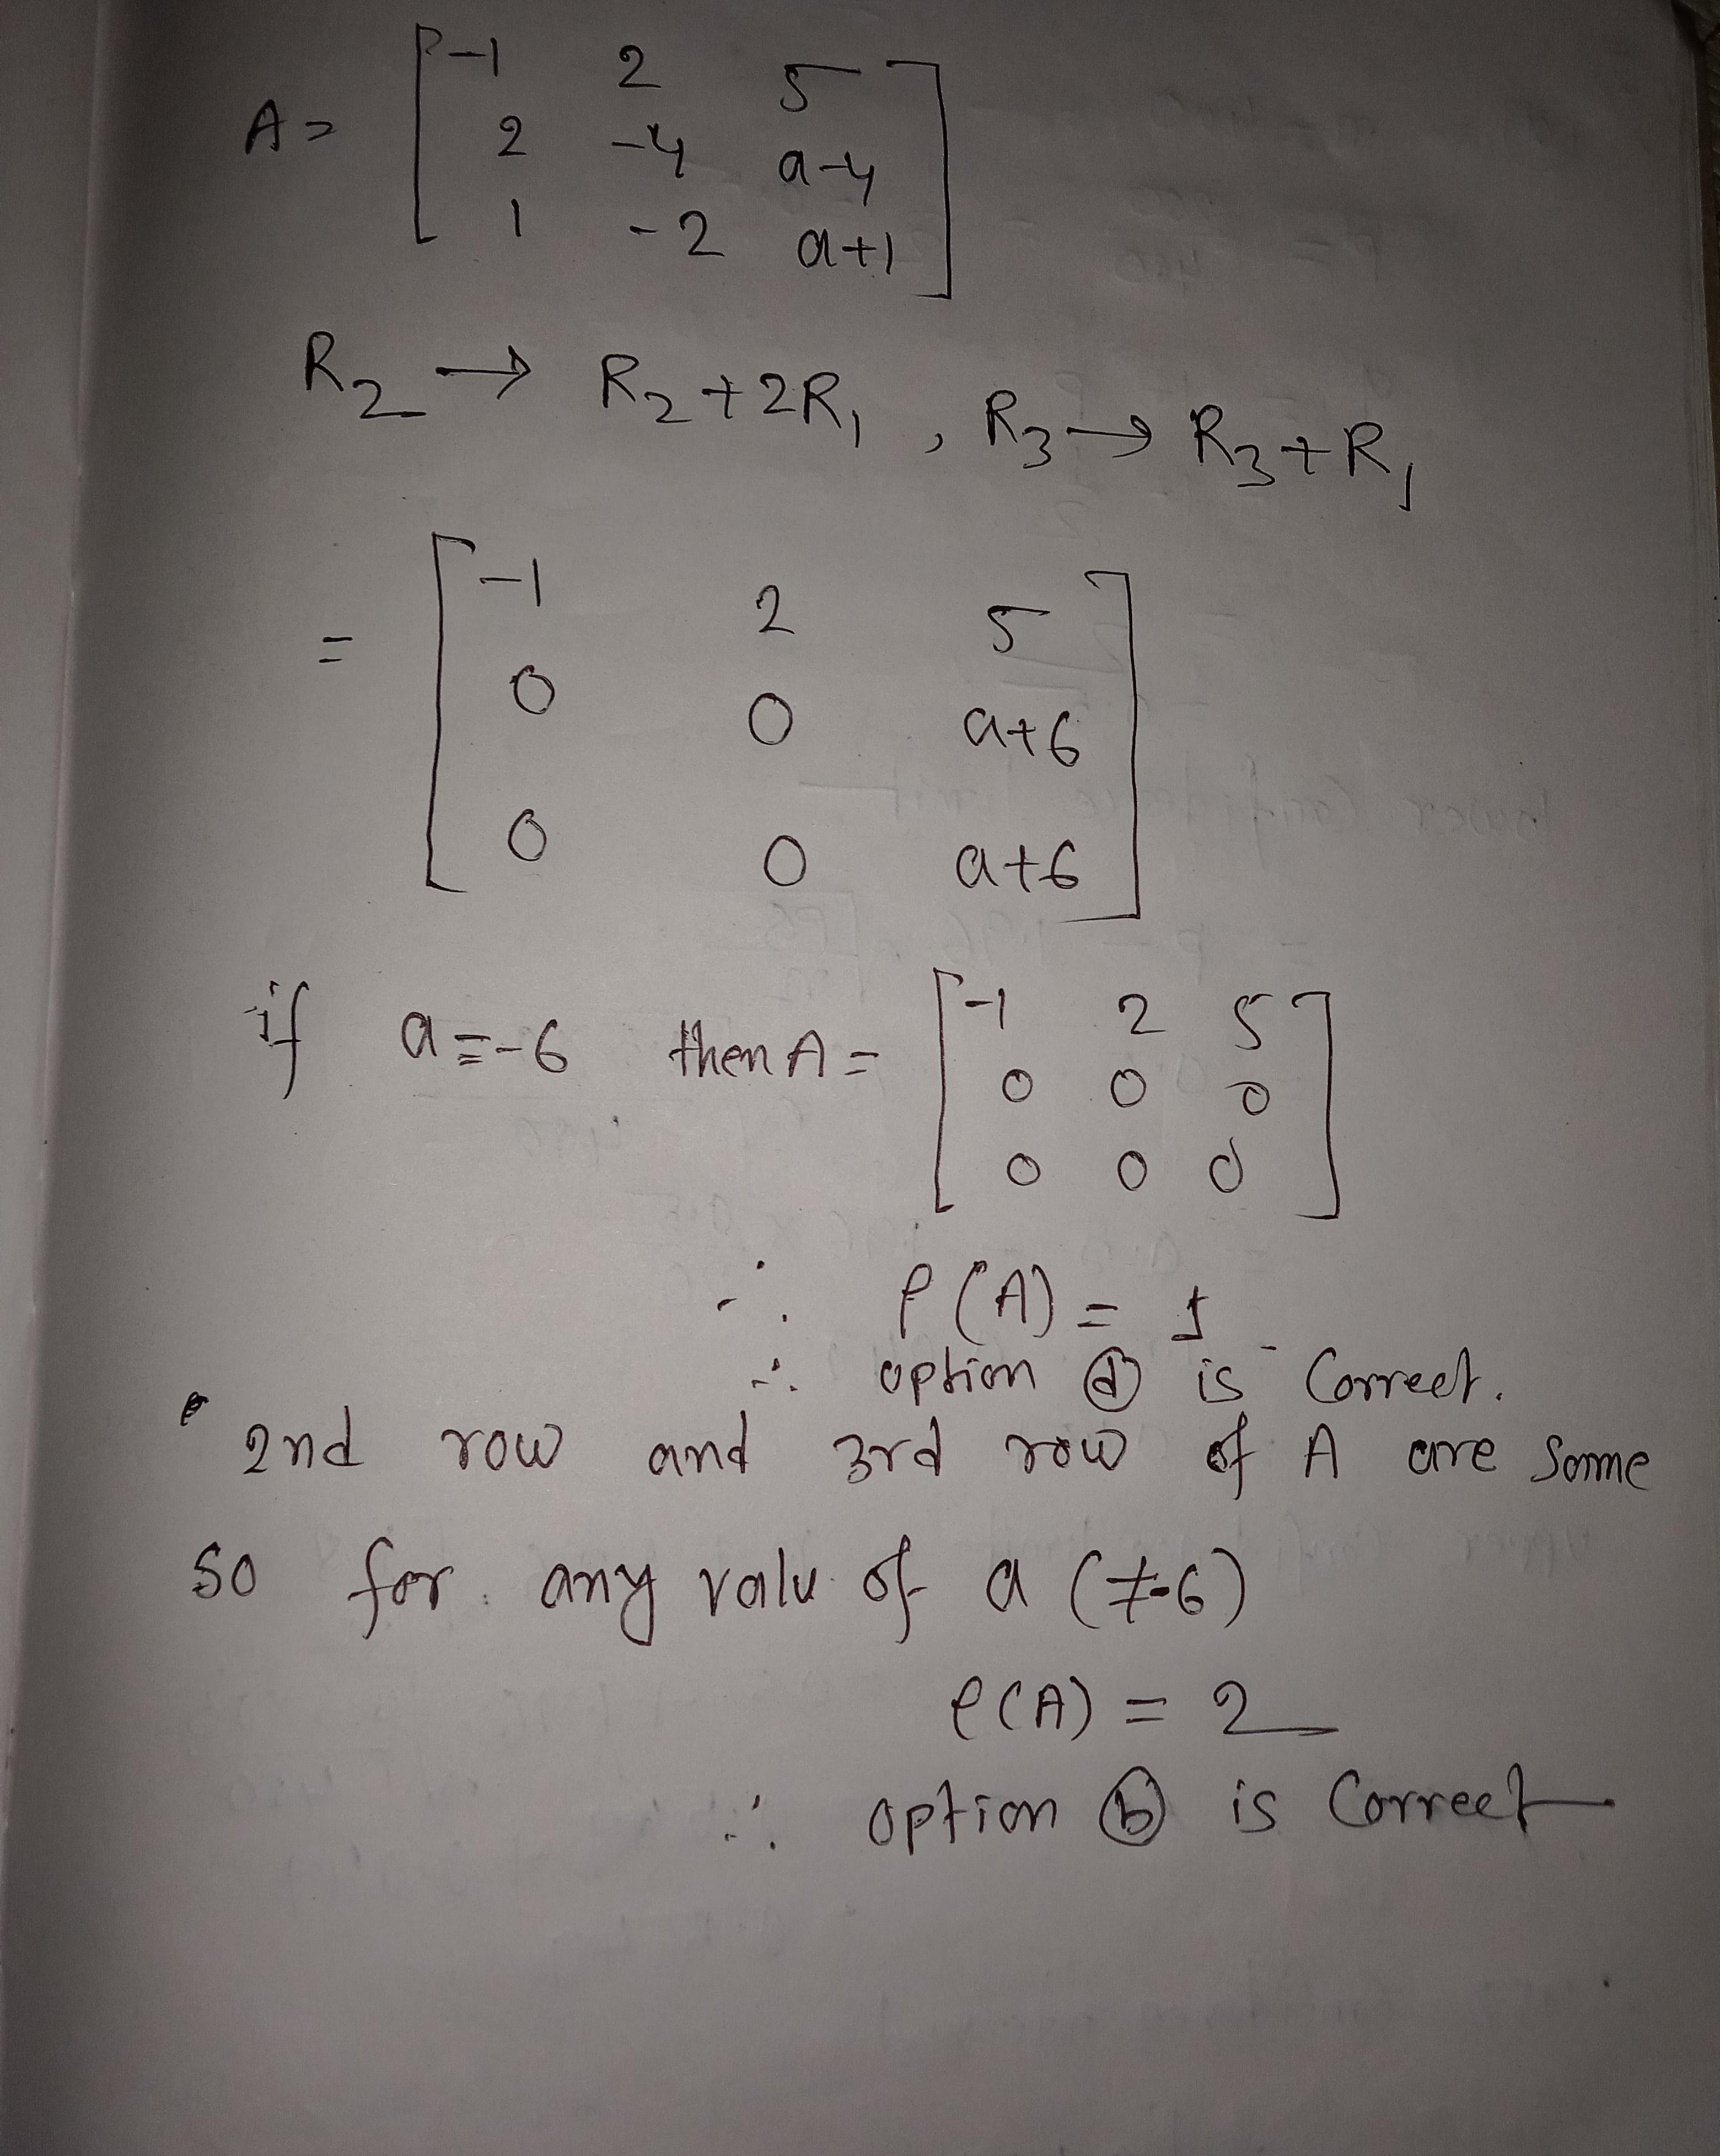 A = [ -1 2 5
2 -4 a-4
1 -2 a+1 ]
R₂ → R₂+2R₁ , R₃ → R₃+R₁
= [ -1 2 5
0 0 a+6
0 0 a+6 ]
if a=-6 then A = [ -1 2 5
0 0 0
0 0 0 ]
∴ ρ(A) = 1
∴ option ⓓ is Correct.
2nd row and 3rd row of A are same
so for any valu of a (≠-6)
ρ(A) = 2
∴ option ⓑ is Correct